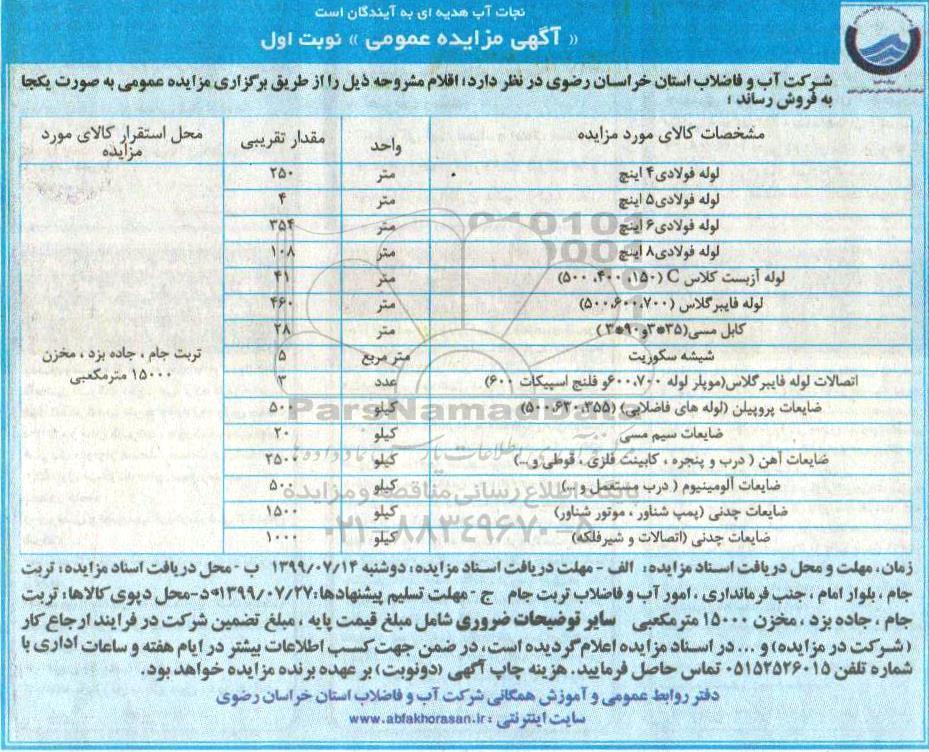 نجات آب هدیه ای به آیندگان است
« آگهی مزایده عمومی » نوبت اول
شرکت آب و فاضلاب استان خراسان رضوی در نظر دارد؛ اقلام مشروحه ذیل را از طریق برگزاری مزایده عمومی به صورت یکجا
به فروش رساند ؛
مشخصات کالای مورد مزایده واحد مقدار تقریبی محل استقرار کالای مورد مزایده
لوله فولادی۴ اینچ متر ۲۵۰
لوله فولادی۵ اینچ متر ۴
لوله فولادی۶ اینچ متر ۳۵۴
لوله فولادی۸ اینچ متر ۱۰۸
لوله آزبست کلاس C (۱۵۰،۴۰۰، ۵۰۰) متر ۴۱
لوله فایبرگلاس (۵۰۰،۶۰۰،۷۰۰) متر ۴۶۰
کابل مسی(۳۵*۳و۹۰*۳) متر ۲۸
شیشه سکوریت متر مربع ۵ تربت جام ، جاده یزد ، مخزن
اتصالات لوله فایبرگلاس(موپلر لوله ۶۰۰،۷۰۰و فلنچ اسپیکات ۶۰۰) عدد ۳ ۱۵۰۰۰ مترمکعبی
ضایعات پروپیلن (لوله های فاضلابی) (۵۰۰،۶۳۰،۳۵۵) کیلو ۵۰۰
ضایعات سیم مسی کیلو ۲۰
ضایعات آهن ( درب و پنجره ، کابینت فلزی ، قوطی و ...) کیلو ۲۵۰۰
ضایعات آلومینیوم ( درب مستعمل و ...) کیلو ۵۰۰
ضایعات چدنی (پمپ شناور ، موتور شناور) کیلو ۱۵۰۰
ضایعات چدنی (اتصالات و شیرفلکه) کیلو ۱۰۰۰
ParsNamadData
بانک اطلاع رسانی مناقصه و مزایده
۰۲۱-۸۸۳۴۹۶۷۰-۵
زمان، مهلت و محل دریافت اسناد مزایده: الف - مهلت دریافت اسناد مزایده: دوشنبه ۱۳۹۹/۰۷/۱۴ ب - محل دریافت اسناد مزایده: تربت
جام ، بلوار امام ، جنب فرمانداری ، امور آب و فاضلاب تربت جام ج - مهلت تسلیم پیشنهادها:۱۳۹۹/۰۷/۲۷*د-محل دپوی کالاها: تربت
جام ، جاده یزد ، مخزن ۱۵۰۰۰ مترمکعبی سایر توضیحات ضروری شامل مبلغ قیمت پایه ، مبلغ تضمین شرکت در فرایند ارجاع کار
(شرکت در مزایده) و ... در اسناد مزایده اعلام گردیده است، در ضمن جهت کسب اطلاعات بیشتر در ایام هفته و ساعات اداری با
شماره تلفن ۰۵۱۵۲۵۲۶۰۱۵ تماس حاصل فرمایید. هزینه چاپ آگهی (دونوبت) بر عهده برنده مزایده خواهد بود.
دفتر روابط عمومی و آموزش همگانی شرکت آب و فاضلاب استان خراسان رضوی
سایت اینترنتی : www.abfakhorasan.ir